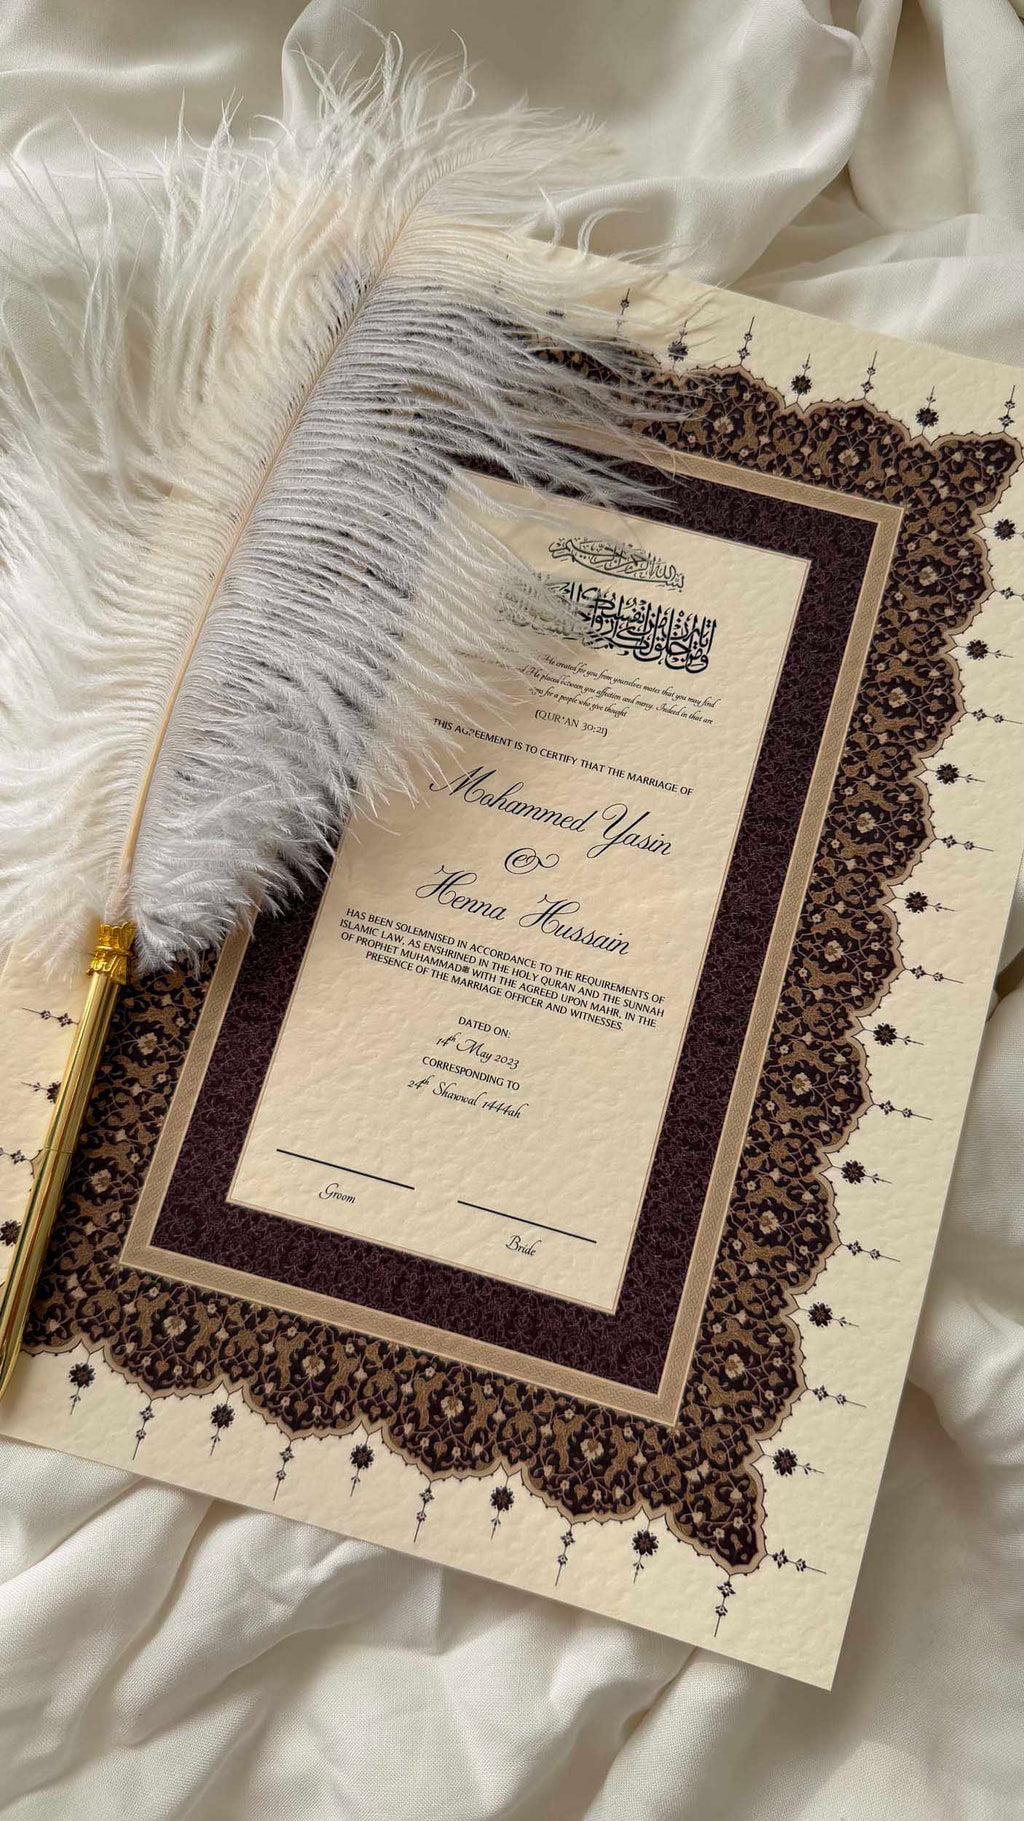 بسم الله الرحمن الرحيم
He created for you from yourselves mates that you may find
He placed between you affection and mercy. Indeed in that are
for a people who give thought
(QUR'AN 30:21)
THIS AGREEMENT IS TO CERTIFY THAT THE MARRIAGE OF
Mohammed Yasin
&
Henna Hussain
HAS BEEN SOLEMNISED IN ACCORDANCE TO THE REQUIREMENTS OF
ISLAMIC LAW, AS ENSHRINED IN THE HOLY QURAN AND THE SUNNAH
OF PROPHET MUHAMMADﷺ WITH THE AGREED UPON MAHR, IN THE
PRESENCE OF THE MARRIAGE OFFICER AND WITNESSES.
DATED ON:
14th May 2023
CORRESPONDING TO
24th Shawwal 1444ah
Groom
Bride